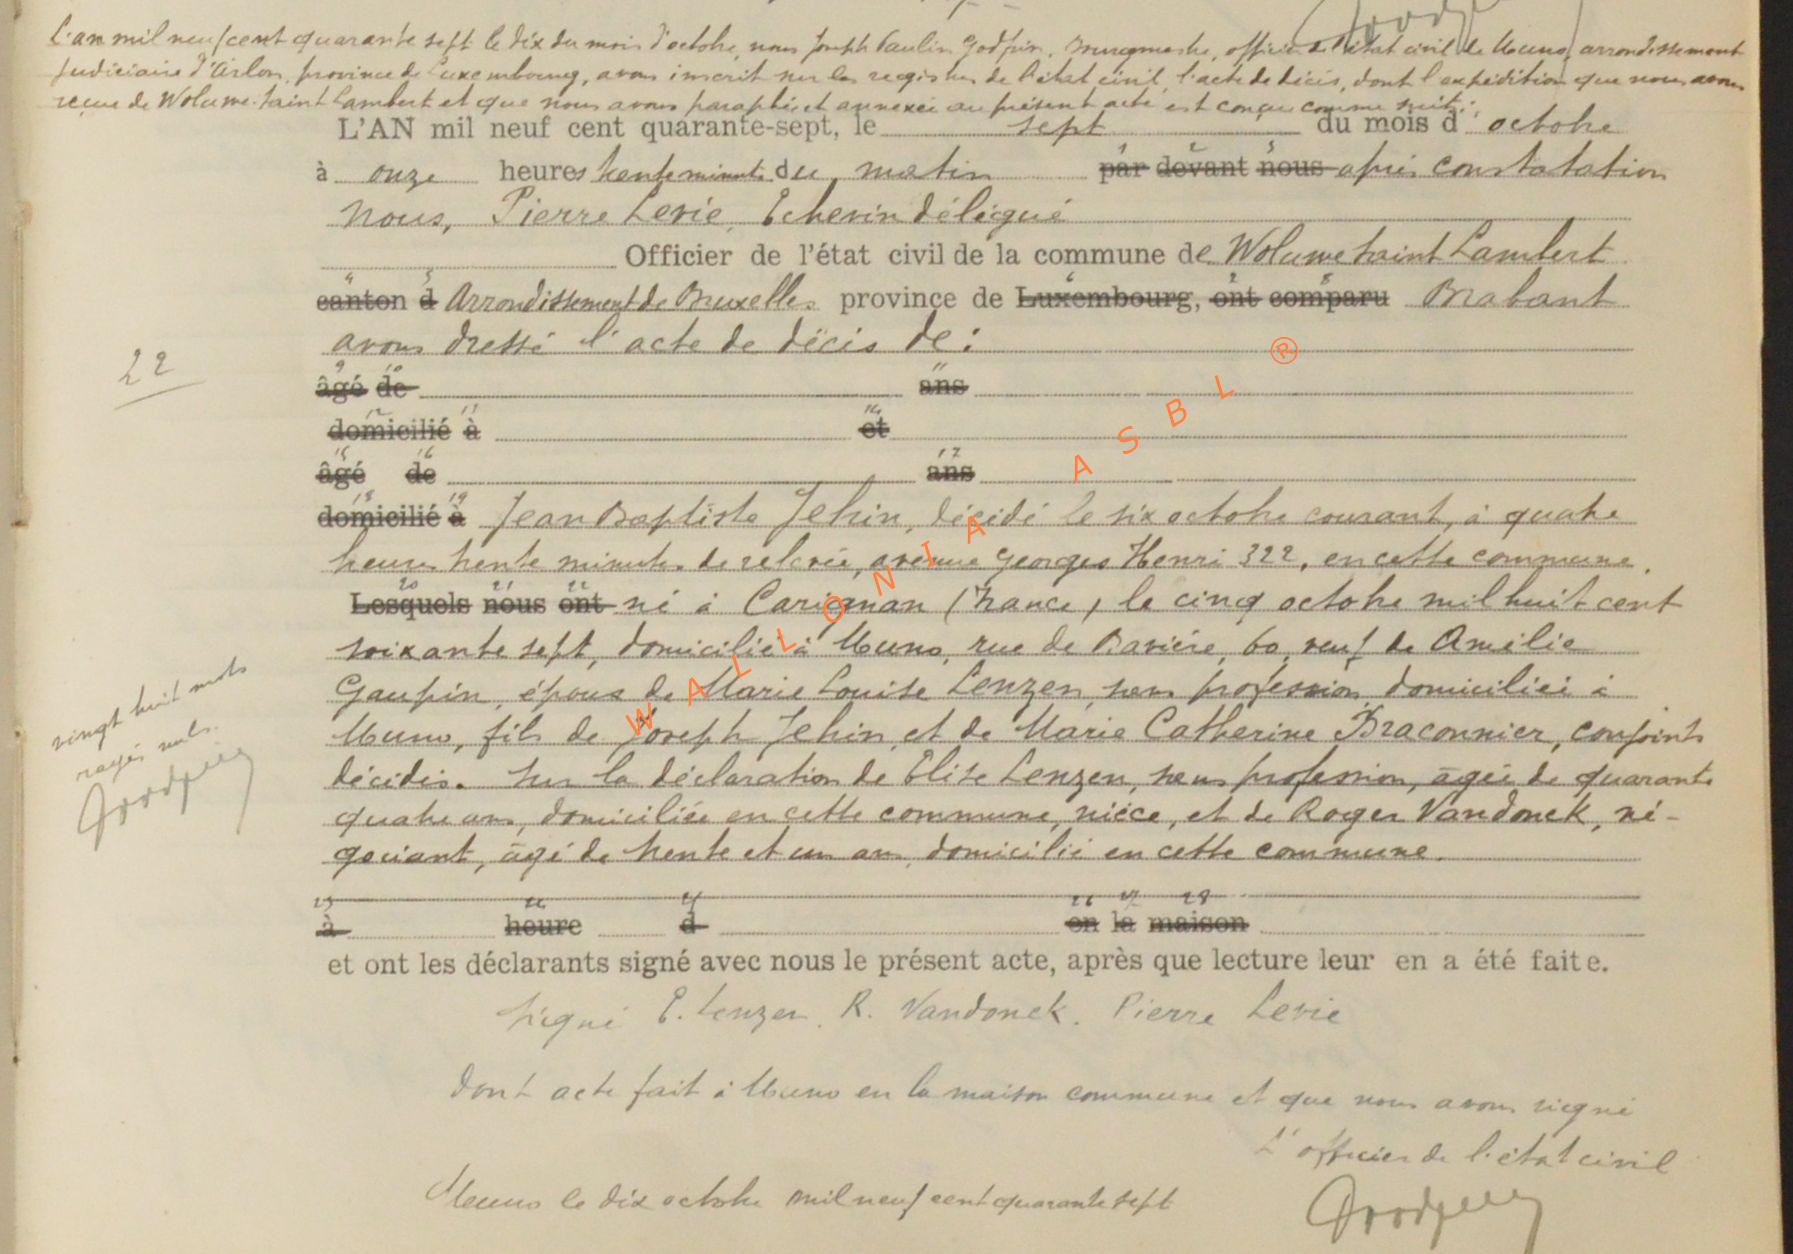 L'an mil neuf cent quarante sept le dix du mois d'octobre, nous Joseph Paulin Godfrin, Bourgmestre, officier de l'état civil de Muno, arrondissement
judiciaire d'Arlon, province de Luxembourg, avons inscrit sur les registres de l'état civil, l'acte de décès, dont l'expédition que nous avons
reçue de Woluwe-Saint Lambert et que nous avons paraphée et annexée au présent acte est conçue comme suit:
L'AN mil neuf cent quarante-sept, le sept du mois d'octobre
à onze heures trente minutes du matin par devant nous après constatation
Nous, Pierre Levie, Echevin délégué
Officier de l'état civil de la commune de Woluwe Saint Lambert
canton d Arrondissement de Bruxelles province de Luxembourg, ont comparu Brabant
avons dressé l'acte de décès de :
22
âgé de ans
domicilié à et
âgé de ans
domicilié à Jean Baptiste Jehin, décédé le six octobre courant, à quatre
heures trente minutes de relevée, avenue Georges Henri 322, en cette commune,
Lesquels nous ont né à Carignan (France), le cinq octobre mil huit cent
soixante sept, domicilié à Muno, rue de Bavière, 60, veuf de Amélie
Gaupin, époux de Marie Louise Lenzen, sans profession, domiciliée à
Muno, fils de Joseph Jehin et de Marie Catherine Braconnier, conjoints
décédés. Sur la déclaration de Elise Lenzen, sans profession, âgée de quarante
quatre ans, domiciliée en cette commune, nièce, et de Roger Vandonck, né-
gociant, âgé de trente et un ans, domicilié en cette commune.
vingt huit mots
rayés nuls.
à heure d en la maison
et ont les déclarants signé avec nous le présent acte, après que lecture leur en a été faite.
Signé E. Lenzen. R. Vandonck. Pierre Levie
Dont acte fait à Muno en la maison commune et que nous avons signé
L'officier de l'état civil
Muno le dix octobre mil neuf cent quarante sept
WALLONIA ASBL ®